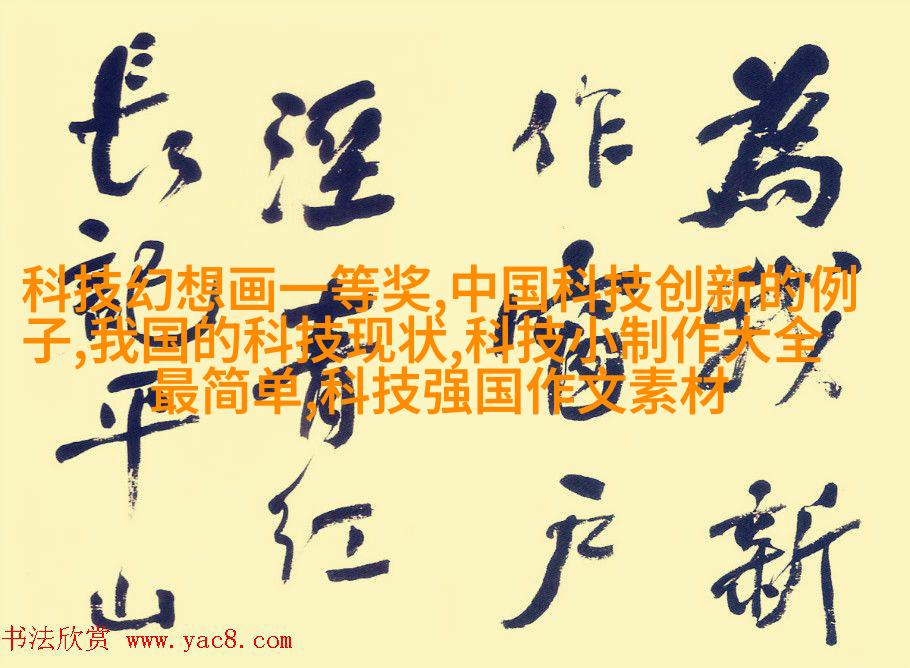 為我新
作窗户
溼青红
長記平山
科技幻想画一等奖,中国科技创新的例
子,我国的科技现状,科技小制作大全
最简单,科技强国作文素材
书法欣赏 www.yac8.com